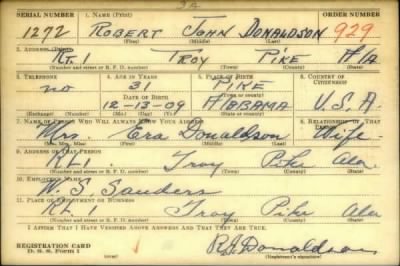 3A
SERIAL NUMBER 1. NAME (Print) ORDER NUMBER
1272 ROBERT JOHN DONALDSON 929
(First) (Middle) (Last)
2. ADDRESS (Print)
Rt. 1 TROY PIKE ALA
(Number and street or R. F. D. number) (Town) (County) (State)
3. TELEPHONE 4. AGE IN YEARS 5. PLACE OF BIRTH 6. COUNTRY OF CITIZENSHIP
no 31 PIKE
DATE OF BIRTH (Town or county)
12-13-09 ALABAMA U.S.A.
(Mo.) (Day) (Yr.) (State or country)
7. NAME OF PERSON WHO WILL ALWAYS KNOW YOUR ADDRESS 8. RELATIONSHIP OF THAT PERSON
Mrs. Era Donaldson Wife
(Mr., Mrs., Miss) (First) (Middle) (Last)
9. ADDRESS OF THAT PERSON
Rt 1. Troy Pike Ala
(Number and street or R. F. D. number) (Town) (County) (State)
10. EMPLOYER'S NAME
W. S. Sanders
11. PLACE OF EMPLOYMENT OR BUSINESS
Rt 1 Troy Pike Ala
(Number and street or R. F. D. number) (Town) (County) (State)
I AFFIRM THAT I HAVE VERIFIED ABOVE ANSWERS AND THAT THEY ARE TRUE.
REGISTRATION CARD
D. S. S. Form 1
R J Donaldson
(Registrant's signature)